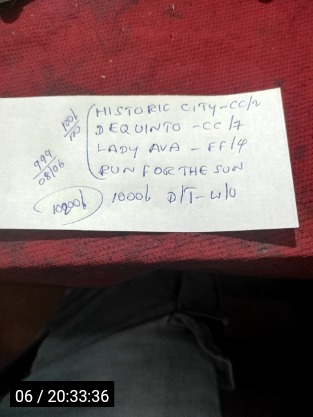 HISTORIC CITY-CC/2
DEQUINTO -CC/7
LADY AVA - FF/4
RUN FOR THE SUN
999
08/06
1000b D/T-W/O
06 / 20:33:36